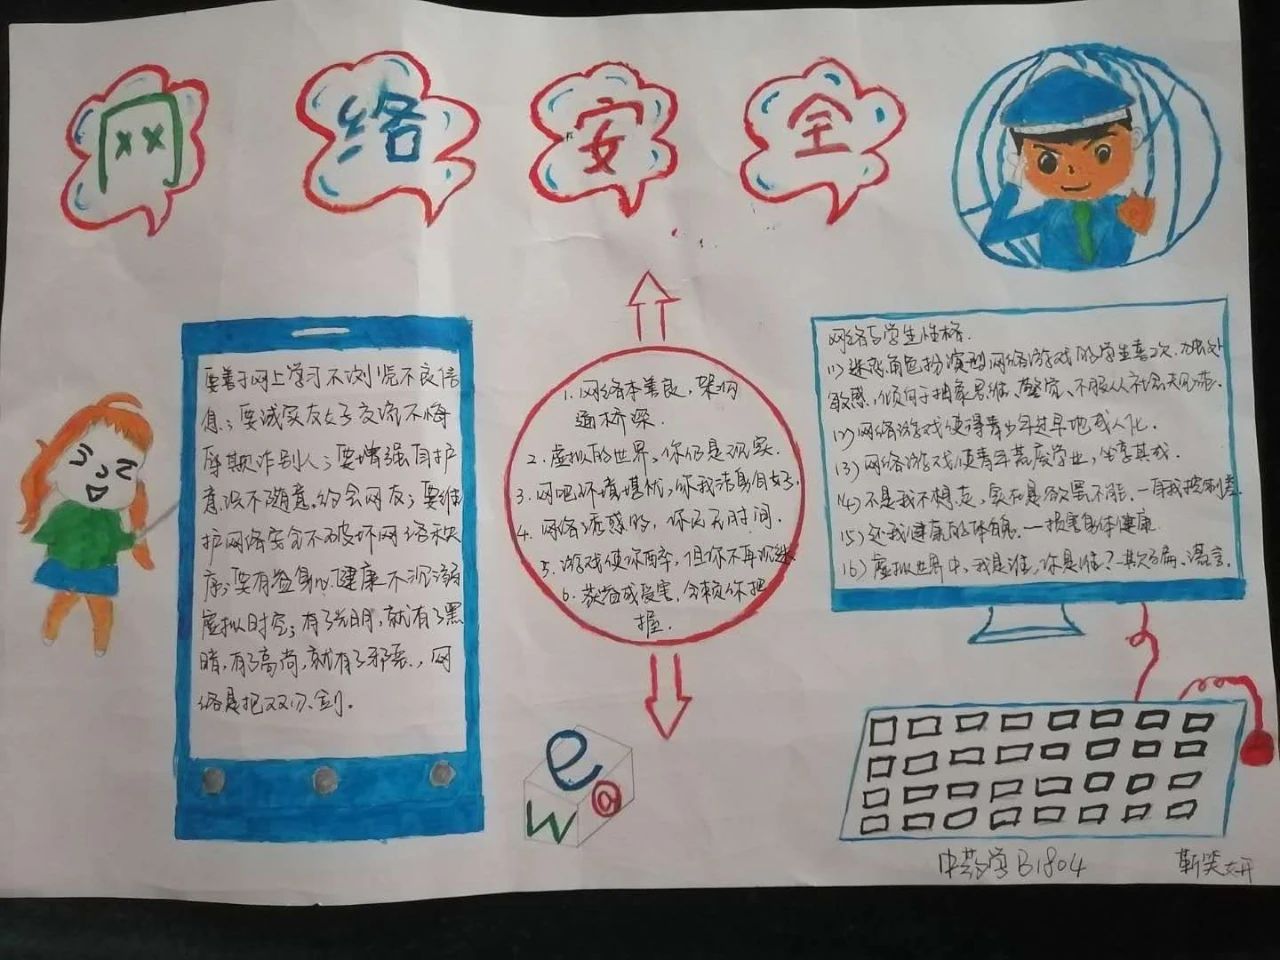 网络安全
要善于网上学习不浏览不良信
息；要诚实友好交流不侮
辱欺诈别人；要增强自护
意识不随意约会网友；要维
护网络安全不破坏网络秩
序；要有益身心健康不沉溺
虚拟时空；有了光明，就有了黑
暗，有了高尚，就有了邪恶，网
络是把双刃剑。
1. 网络本善良，架构
通桥梁.
2. 虚拟的世界，你仍是现实.
3. 网吧环境堪忧，你我洁身自好.
4. 网络诱惑的，你我无时间.
5. 游戏使你醉，但你不再沉迷
6. 获益或受害，全赖你把
握.
网络与学生性格.
(1) 迷恋角色扮演型网络游戏的学生喜欢独处
敏感，倾向于抽象思维、警觉、不服从社会
(2) 网络游戏使得青少年过早地成人化.
(3) 网络游戏使青年荒废学业，坐享其成.
(4) 不是我不想走，实在是欲罢不能.一自我控制差
(5) 还我健康的体魄.一损害身体健康
(6) 虚拟世界中，我是谁，你是谁？一欺骗、谎言.
e
w
@
中药学B1804 靳笑妍